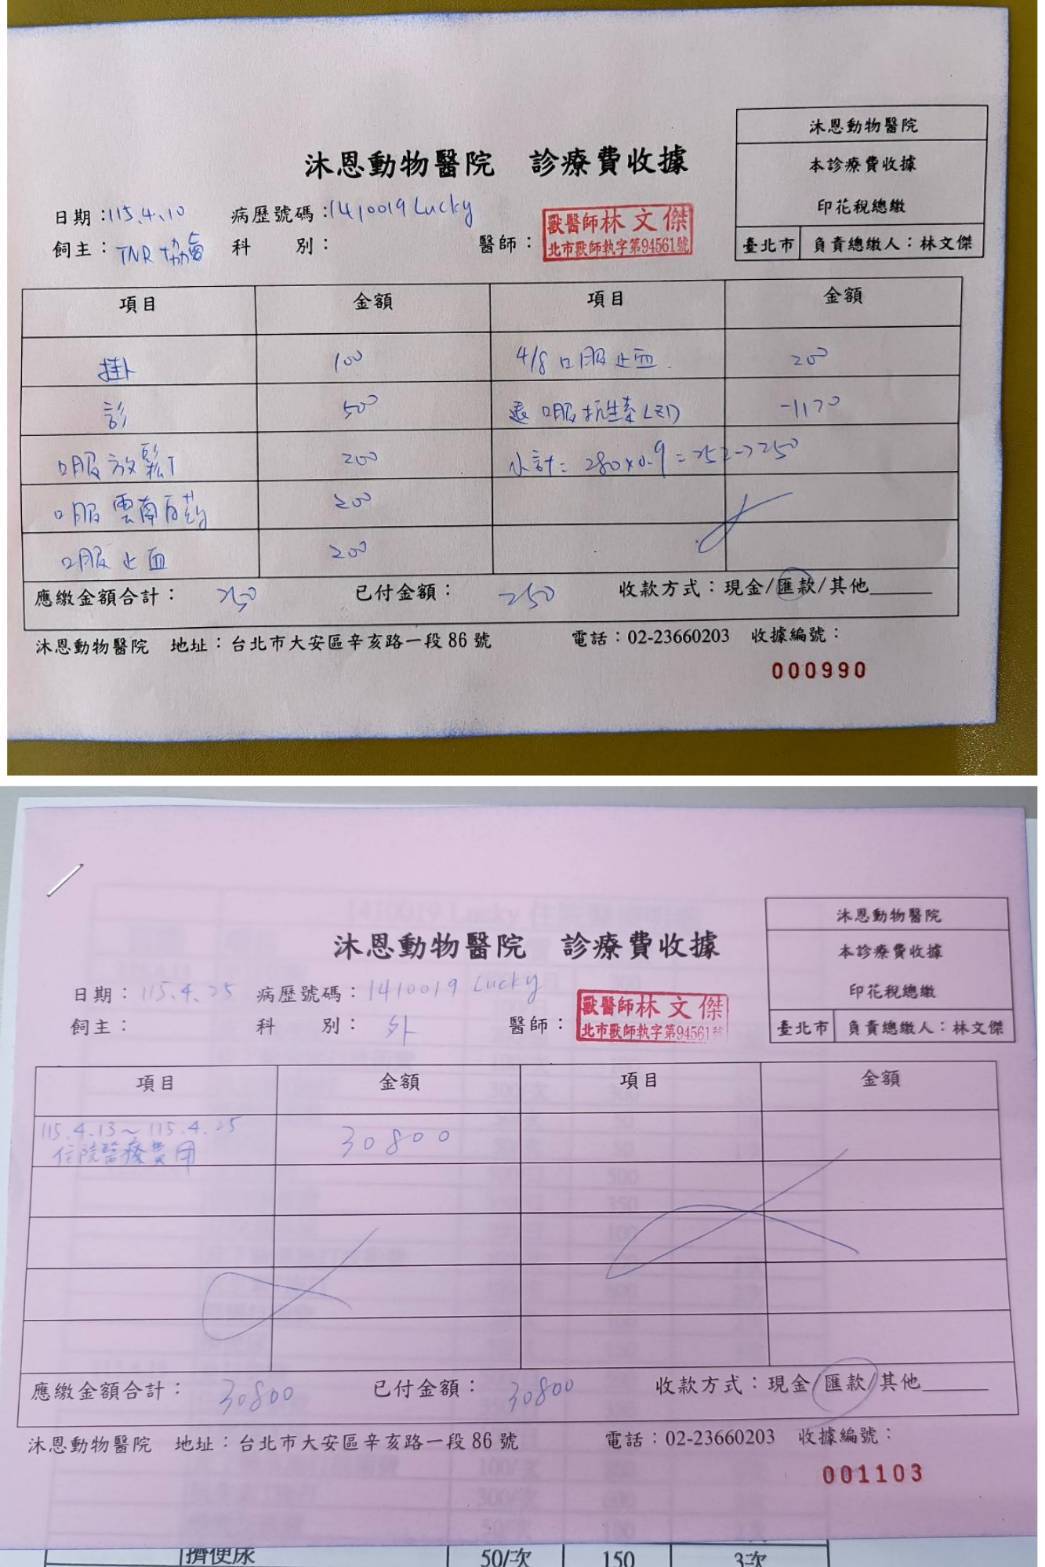 沐恩動物醫院 診療費收據
沐恩動物醫院
本診療費收據
印花稅總繳
臺北市 負責總繳人：林文傑
日期：115.4.10 病歷號碼：1410019 Lucky
飼主：TNR協會 科 別： 醫師：
獸醫師林文傑
北市獸師執字第94561號
項目 金額 項目 金額
掛 100 4/8 口服止血 200
診 500 退口服抗生素LZD -1120
口服放鬆T 200 小計= 280x0.9=252->250
口服雲南白葯 200
口服止血 200
應繳金額合計： 250 已付金額： 250 收款方式：現金/匯款/其他
沐恩動物醫院 地址：台北市大安區辛亥路一段86號 電話：02-23660203 收據編號：
000990
沐恩動物醫院 診療費收據
沐恩動物醫院
本診療費收據
印花稅總繳
臺北市 負責總繳人：林文傑
日期：115.4.25 病歷號碼：1410019 Lucky
飼主： 科 別：外 醫師：
獸醫師林文傑
北市獸師執字第94561號
項目 金額 項目 金額
115.4.13～115.4.25
住院醫療費用 30800
應繳金額合計： 30800 已付金額： 30800 收款方式：現金/匯款/其他
沐恩動物醫院 地址：台北市大安區辛亥路一段86號 電話：02-23660203 收據編號：
001103
擠便尿 50/次 150 3次